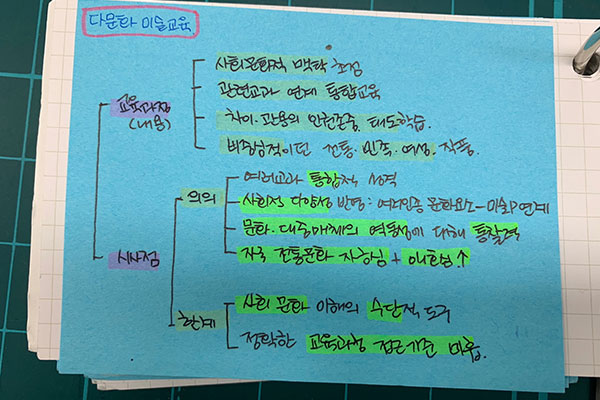 다문화 미술교육
사회문화적 맥락 초점
관련교과 연계 통합교육
교육과정
(내용)
차이·관용의 인권존중 태도학습.
비중심적이던 전통·민족·여성 작품.
의의
여러교과 통합적 성격
사회적 다양성 반영: 여러인종 문화요소-미술 연계
문화·대중매체의 역동성에 대해 통찰력
시사점
자국 전통문화 자긍심 + 애호심↑
한계
사회 문화 이해의 수단적 도구
정확한 교육과정 접근기준 미흡.